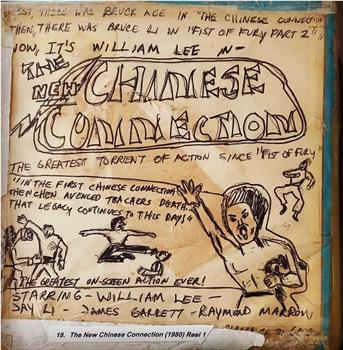 FIRST, THERE WAS BRUCE LEE IN "THE CHINESE CONNECTION"
THEN, THERE WAS BRUCE LI IN "FIST OF FURY PART 2"
NOW, IT'S WILLIAM LEE IN-
THE
NEW CHINESE
CONNECTION
THE GREATEST TORRENT OF ACTION SINCE "FIST OF FURY"
"IN THE FIRST CHINESE CONNECTION
CHEN AVENGED TEACHERS DEATH...
THAT LEGACY CONTINUES TO THIS DAY!"
THE GREATEST ON-SCREEN ACTION EVER!
STARRING - WILLIAM LEE -
JAY LI - JAMES GARRETT - RAYMOND MARROW
18. The New Chinese Connection (1980) Reel 1